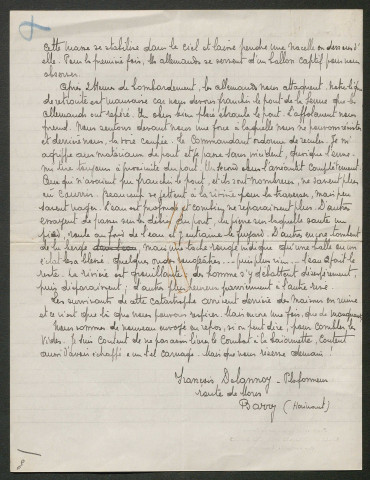 cette masse se stabilise dans le ciel et laisse pendre une nacelle en dessous d'
elle. Pour la première fois, les allemands se servent d'un ballon captif pour nous
observer.
Après 2 Heures de bombardement, les allemands nous attaquent. Notre ligne
de retraite est mauvaise car nous devons franchir le pont de la ferme que les
allemands ont repéré. Un obus bien placé ébranle le pont. L'affolement nous
prend. Nous sentons devant nous une force à laquelle nous ne pouvons résister
et derrière nous, la voie coupée. Le Commandant ordonne de reculer. Je m'
agriffe aux matériaux du pont et je passe sans incident, quoique l'enne-
mi tire toujours à proximité du pont. Un second obus l'anéantit complètement.
Ceux qui n'avaient pu franchir le pont, et ils sont nombreux, ne savent plus
où courir. Beaucoup se jettent à la rivière pour la traverser, mais peu
savent nager. L'eau est profonde et combien ne reparaîtront plus. D'autres
essayent de passer sur les débris du pont, la pierre sur laquelle saute un
pied, roule au fond de l'eau et entraîne le fuyard. D'autres encore tombent
de la berge mais une tache rouge indique qu'une balle ou un
éclat les a blessé. Quelques ronds rougeâtres ... puis plus rien ... l'eau a fait le
reste. La rivière est grouillante, des hommes s'y débattent désespérément,
puis disparaissent; d'autres plus heureux parviennent à l'autre rive.
Les survivants de cette catastrophe arrivent derrière des maisons en ruine
et ce n'est que là que nous pouvons respirer. Mais encore une fois, que de manquants.
Nous sommes de nouveau envoyé en repos, si on peut dire, pour combler les
vides. Je suis content de ne pas avoir livré le combat à la baïonnette, content
aussi d'avoir échappé à un tel carnage. Mais que nous réserve demain!
François Delannoy - Plafonneur
route de Mons
Barry (Hainaut)
8